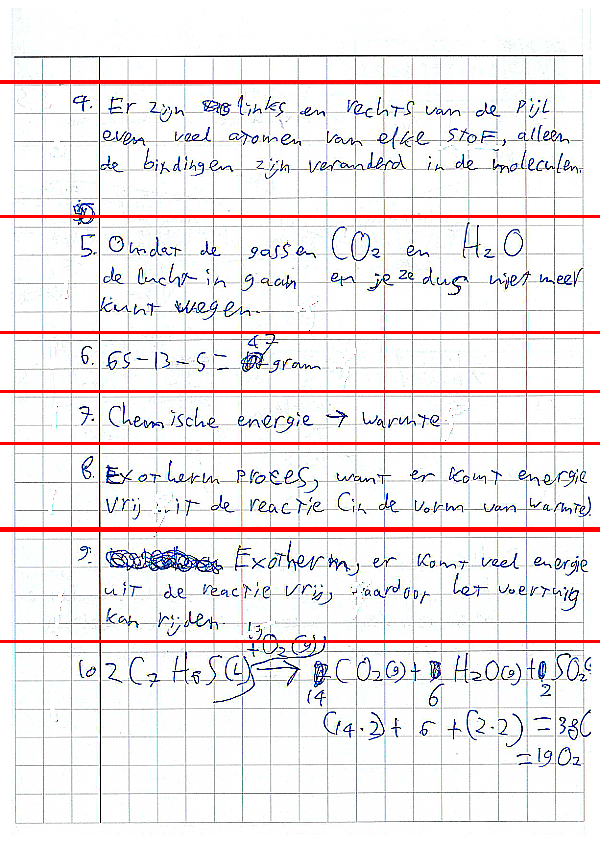 4. Er zijn links en rechts van de pijl
even veel atomen van elke stof, alleen
de bindingen zijn veranderd in de moleculen.
5. Omdat de gassen CO2 en H2O
de lucht in gaan en je ze dus niet meer
kunt wegen.
6. 65-13-5 = 47 gram
7. Chemische energie → warmte
8. Exotherm proces, want er komt energie
vrij uit de reactie (in de vorm van warmte)
9. Exotherm, er komt veel energie
uit de reactie vrij, waardoor het voertuig
kan rijden.
10 2 C7 H6S(l) + O2(g) → 14 CO2(g) + 6 H2O(g) + 2 SO2(
(14·2) + 6 + (2·2) = 38(
= 19 O2